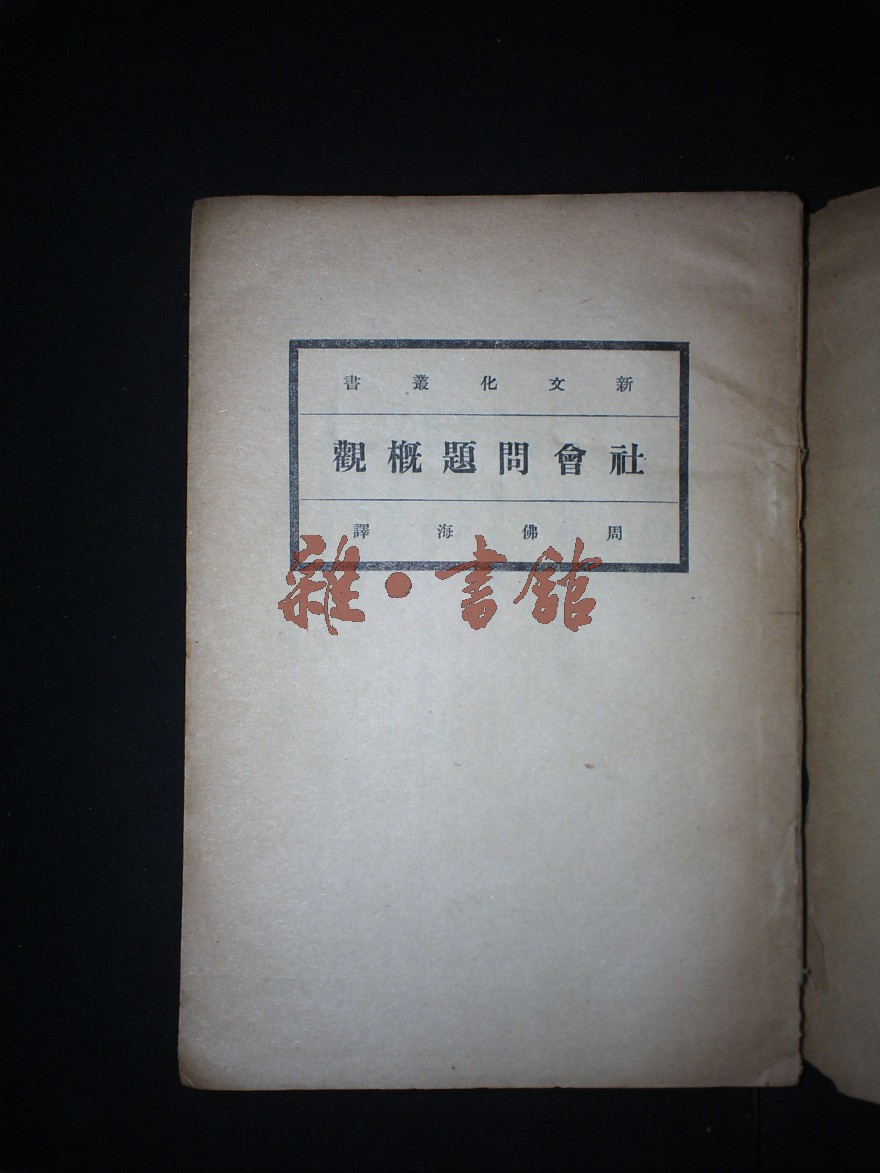 新文化叢書
社會問題概觀
周佛海譯
雜·書館